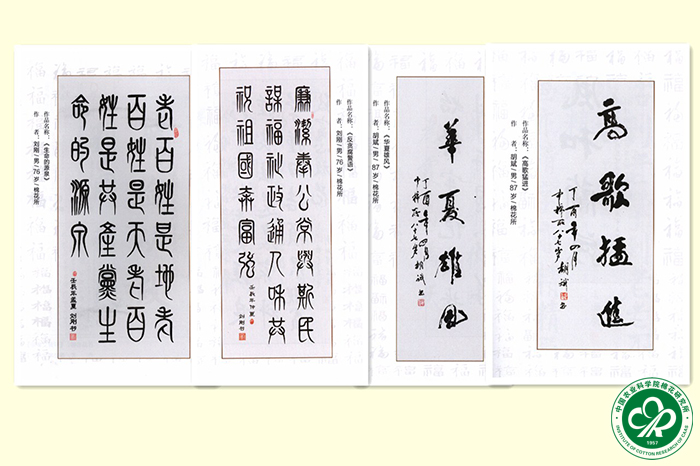 作品名称：《生命的源泉》
作 者：刘刚/男/76岁/棉花所
老百姓是地老
百姓是天老百
姓是共產黨生
命的源泉
刘刚书
作品名称：《反贪腐警语》
作 者：刘刚/男/76岁/棉花所
廉潔奉公常與斯民
謀福祉政通人和共
祝祖國奔富強
刘刚书
作品名称：《华夏雄风》
作 者：胡斌/男/87岁/棉花所
華夏雄風
丁酉年四月
中棉所八十七岁胡斌书
作品名称：《高歌猛进》
作 者：胡斌/男/87岁/棉花所
高歌猛進
丁酉年四月
中棉所八十七岁胡斌书
中国农业科学院棉花研究所
1957
INSTITUTE OF COTTON RESEARCH OF CAAS